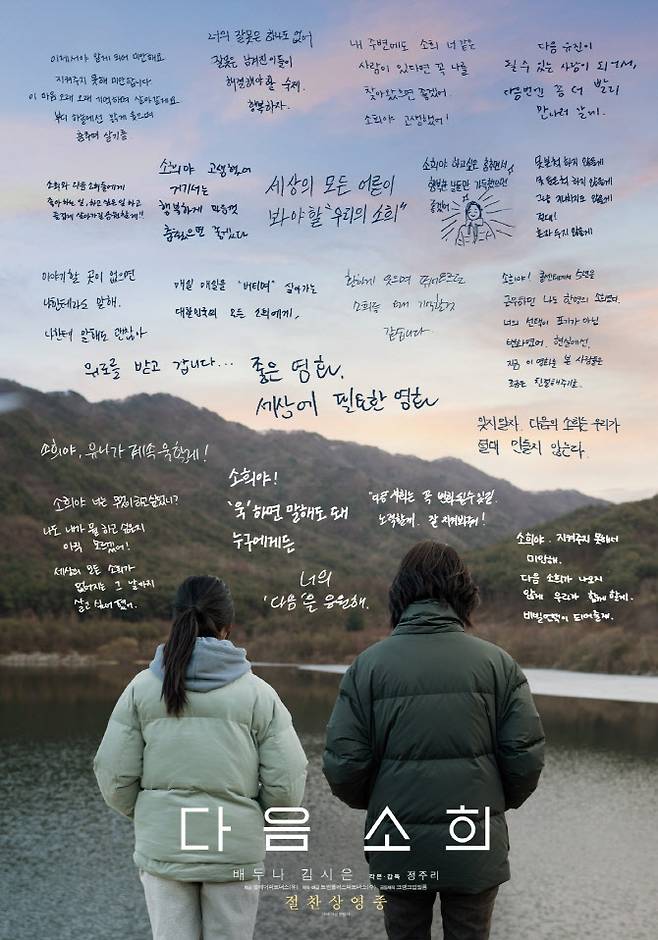 이제서야 알게 되어 미안해요
지켜주지 못해 미안합니다
이 마음 오래 오래 기억하며 살아갈게요
부디 하늘에선 밝게 웃으며
춤추며 살기를
너의 잘못은 하나도 없어
잘못은 남겨진 이들이
해결해야 할 숙제.
행복하자.
내 주변에도 소희 너 같은
사람이 있다면 꼭 나를
찾아왔으면 좋겠어.
소희야 고생했어!
다음 유진이
될 수 있는 사람이 되어서,
다음번엔 좀 더 빨리
만나러 갈게.
소희와 다음 소희들에게
좋아하는 일, 하고 싶은 일 하고
즐겁게 살아가길 응원할게!!
소희야 고생했어
거기서는
행복하게 마음껏
춤췄으면 좋겠다
세상의 모든 어른이
봐야할 "우리의 소희"
소희야 하고싶은 춤추면서
행복한 날들만 가득했으면
좋겠어
못본척 하지 않을게
절대!
혼자 두지 않을게
이야기할 곳이 없으면
나한테라도 말해.
나한테 말해도 괜찮아
매일 매일을 "버티며" 살아가는
대한민국의 모든 소희에게,
환하게 웃으며 뛰어오르던
소희를 오래 기억할것
같습니다
소희야! 콜센터에서 5년을
근무하면 나도 한명의 소희였다.
너의 선택이 포기가 아닌
지금 이 영화를 본 사람들은
조금은 친절해주기를.
위로를 받고 갑니다...
좋은 영화.
세상에 필요한 영화
잊지말자. 다음의 소희는 우리가
절대 만들지 않는다.
소희야, 유니가 계속 욱할게!
소희야 너는 무엇이 하고싶었니?
나도 내가 뭘 하고 싶은지
아직 모르겠어!
세상의 모든 소희가
없어지는 그 날까지
살고 싶어졌어.
소희야!
'욱'하면 말해도 돼
누구에게든
너의
'다음'을 응원해.
사회는 꼭 변화될수있길.
노력할게. 잘 지켜봐줘!
소희야. 지켜주지 못해서
미안해.
다음 소희가 나오지
않게 우리가 함께 할게.
버팀목이 되어줄게.
다음 소희
배두나 김시은 각본·감독 정주리
절찬상영중